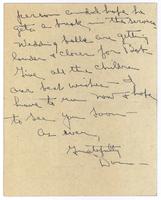 person and I hope he
gets a break, in the service
Wedding bells are getting
louder & closer for Bob.
Give all the children
our best wishes - I
have to run now & hope
to see you soon -
As ever,
Gratefully